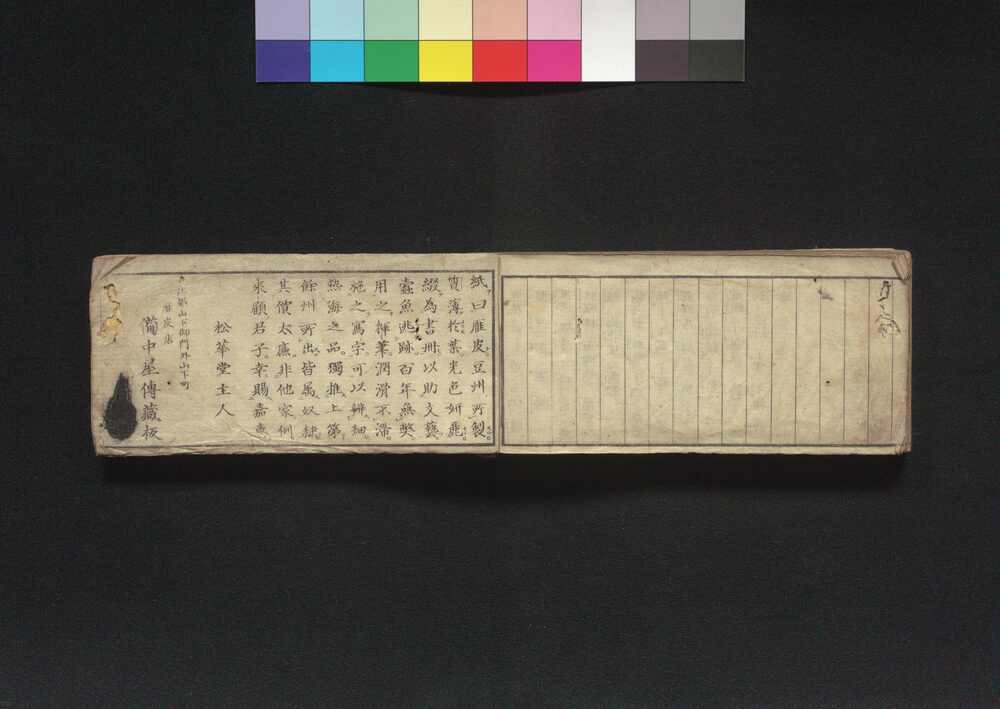 紙曰雁皮豆州所製
質薄於葉光色妍麗
綴為書冊以助文藝
蠧魚逃跡百年無獘
用之揮筆潤滑不滞
施之寫字可以辨細
熱海之品獨推上第
餘州所出皆属奴隷
其價太廉非他家例
来顧君子幸賜嘉惠
松華堂主人
江都山下御門外山下町
雁皮店
備中屋傳藏板